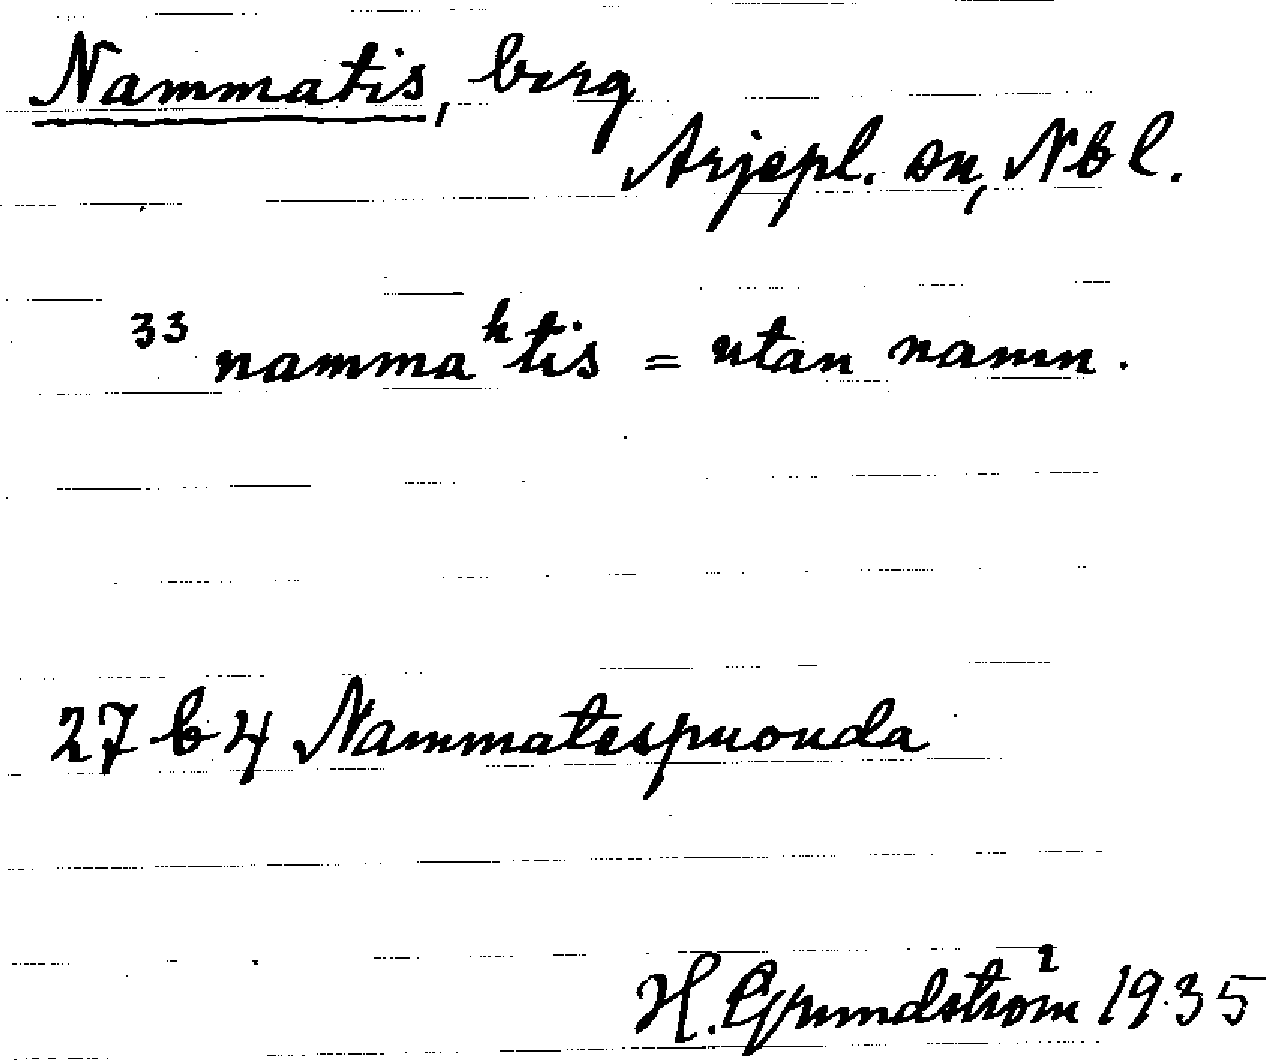 Nammatis, berg
Arjepl. sn, Nbl.
33 nammaʰtis = utan namn.
27 b 4 Nammatespuouda
H. Grundström 1935